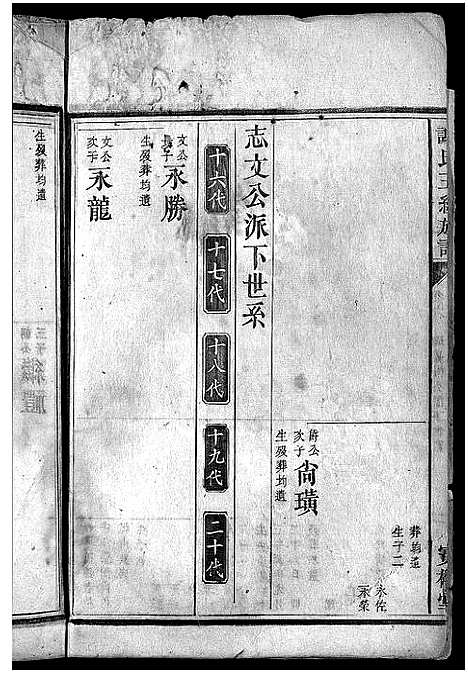 葬均遺
生子二
永佐
永榮
公
次子
尚璜
生歿葬均遺
志文公派下世系
十六代
十七代
十八代
十九代
二十代
文公
長子
永勝
生歿葬均遺
文公
次子
永龍
生歿葬均遺